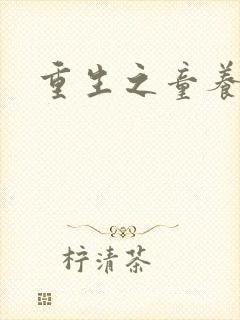 重生之童养
柠清茶